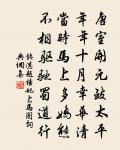 唐室開元致太平
年年十月幸華清
當時馬上多嬌態
不相驅馳蜀道行
錢選楊妃上馬圖詞